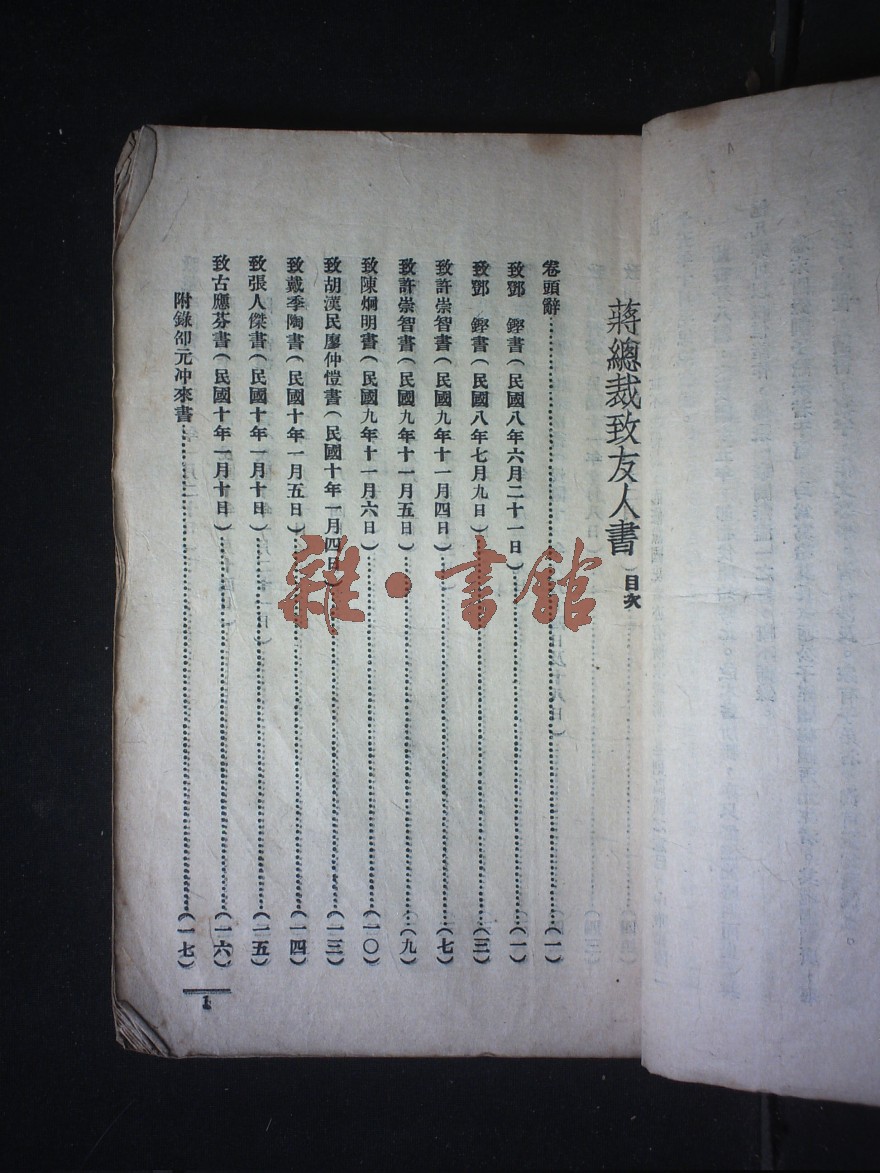 蔣總裁致友人書 目次
卷頭辭……(一)
致鄧 鏗書(民國八年六月二十一日)……(一)
致鄧 鏗書(民國八年七月九日)……(三)
致許崇智書(民國九年十一月四日)……(七)
致許崇智書(民國九年十一月五日)……(九)
致陳炯明書(民國九年十一月六日)……(一〇)
致胡漢民廖仲愷書(民國十年一月四日)……(一三)
致戴季陶書(民國十年一月五日)……(一四)
致張人傑書(民國十年一月十日)……(一五)
致古應芬書(民國十年一月十日)……(一六)
附錄邵元冲來書……(一七)
1
雜·書館